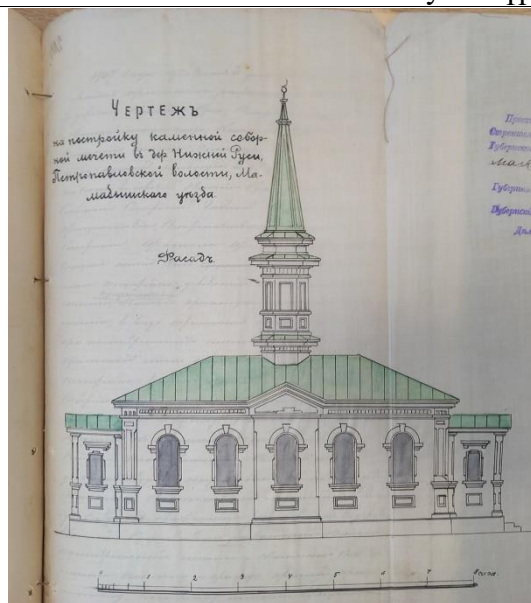 Чертежъ
на постройку каменной собор-
ной мечети въ дер Нижней Руси,
Петропавловской волости, Ма-
мадышскаго уѣзда
Фасадъ.
0 1 2 3 4 5 6 7 8 саж.